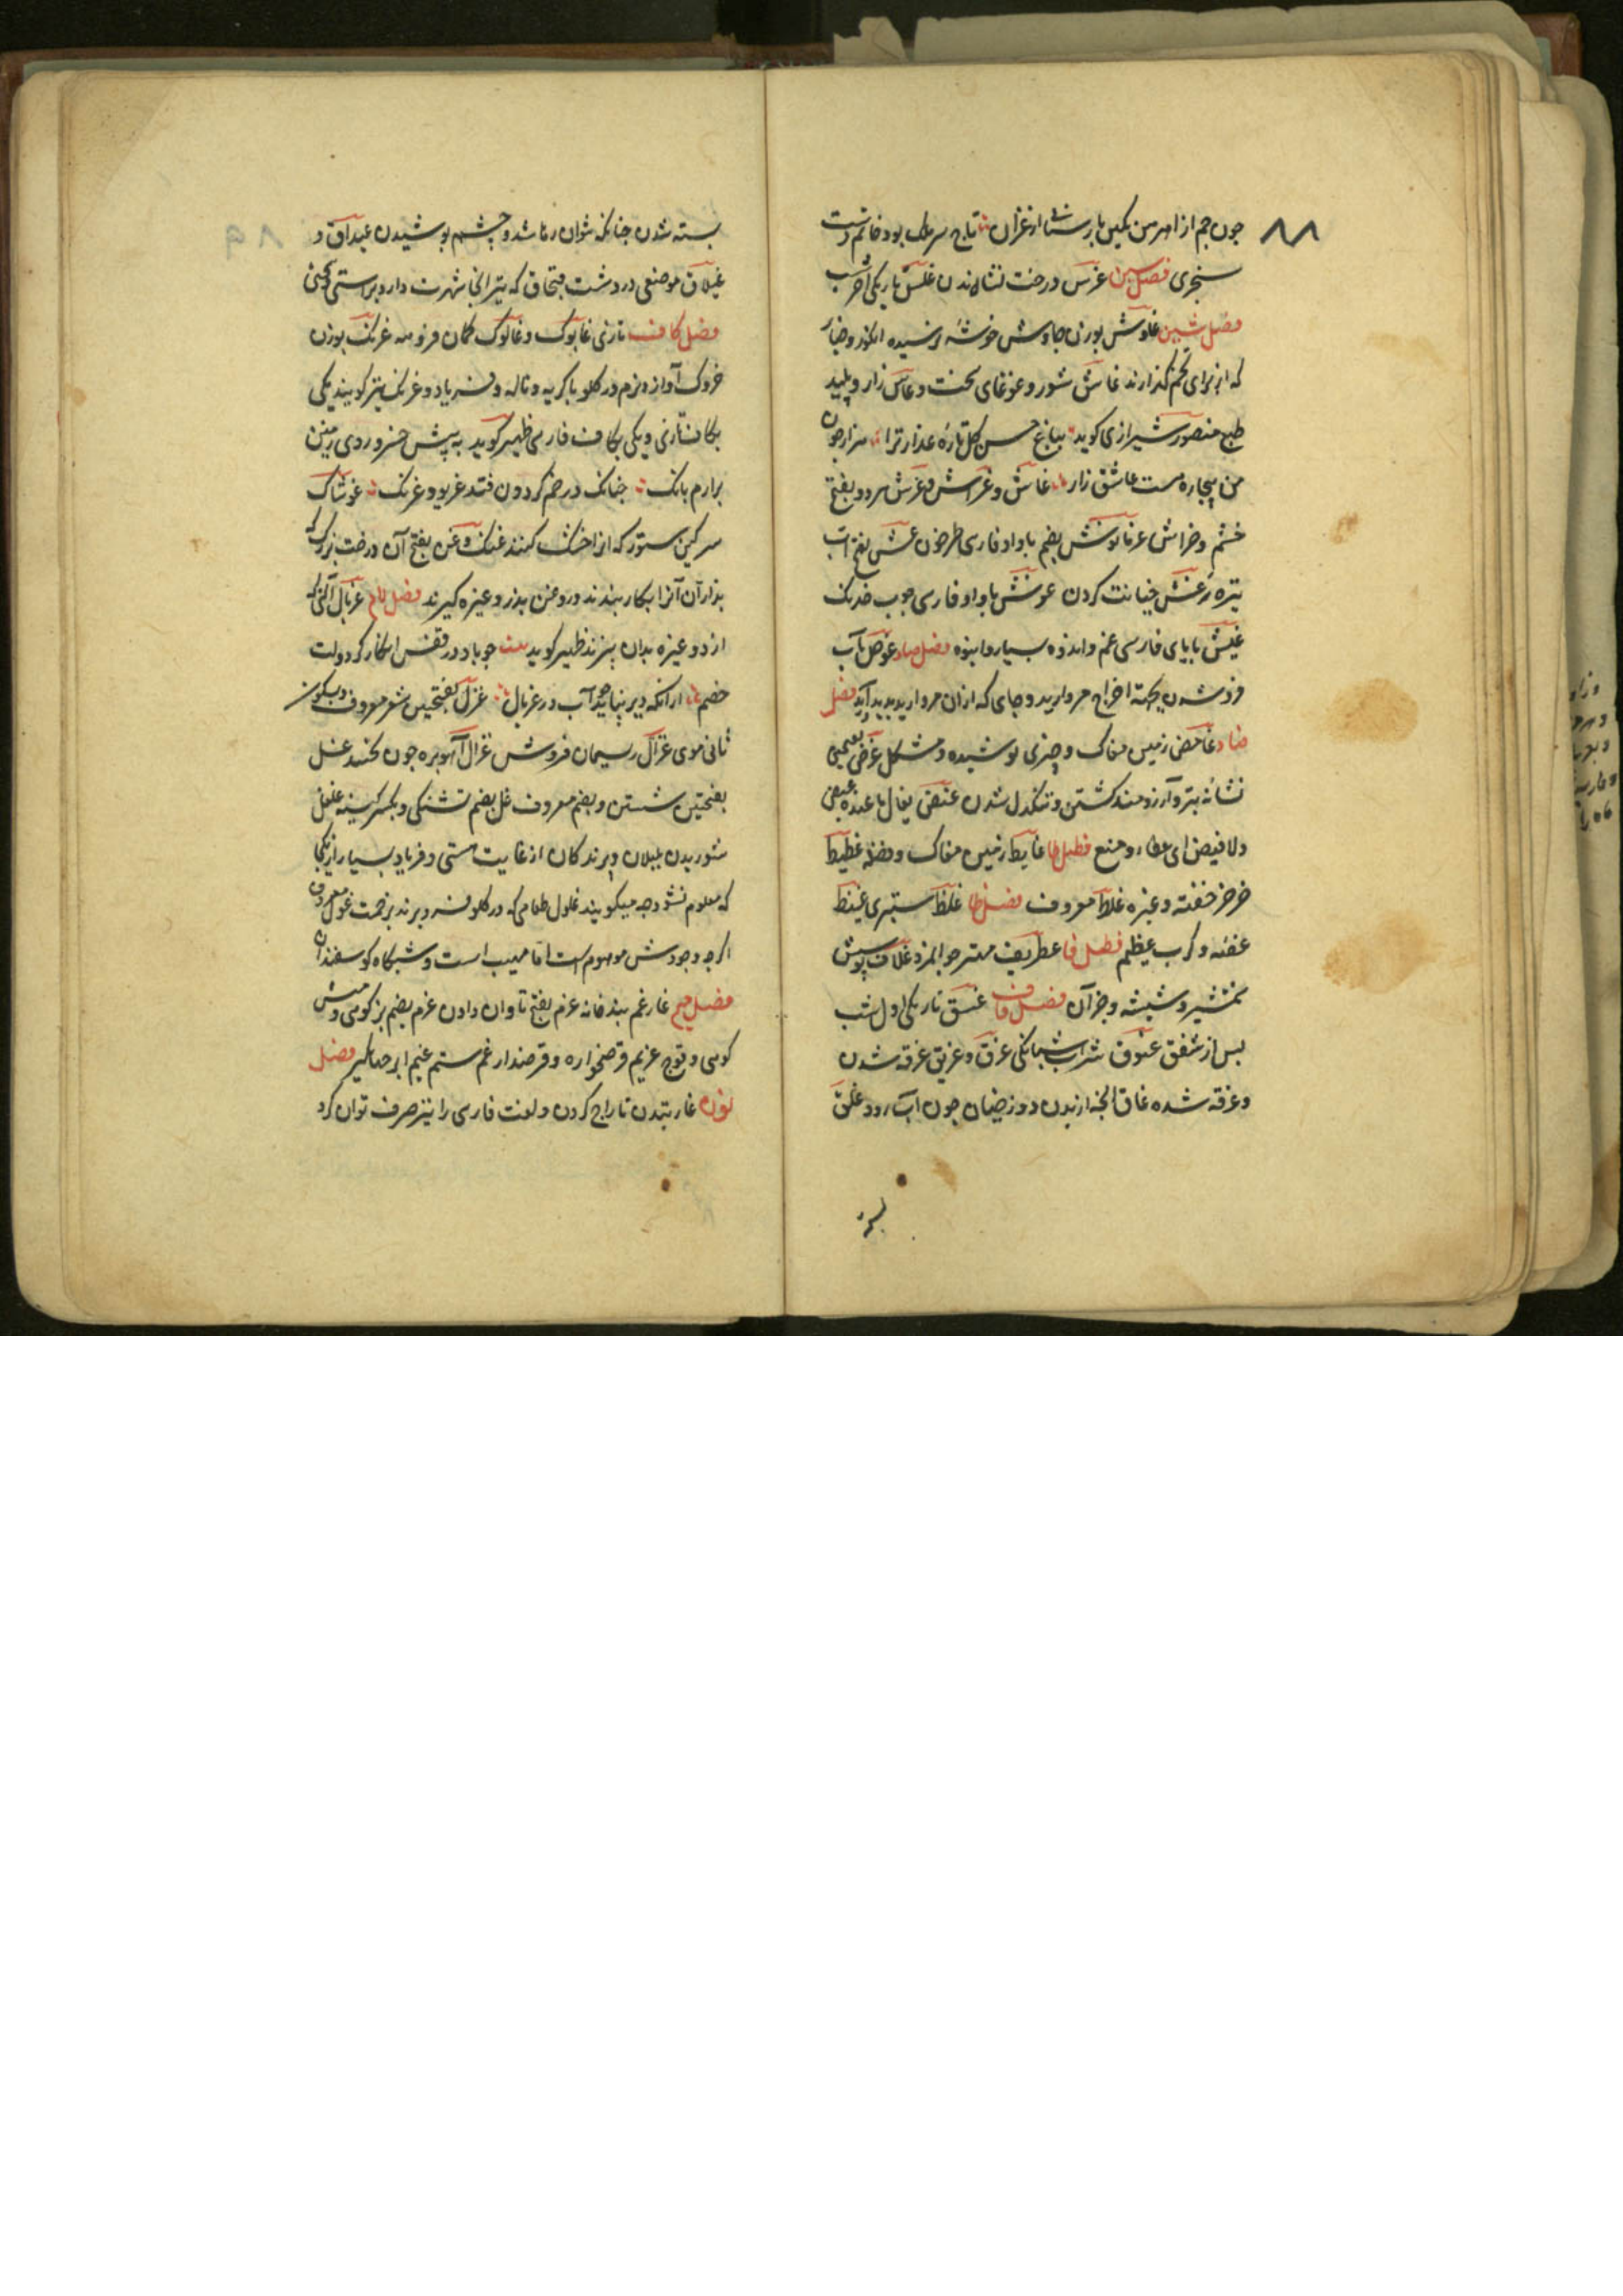 ۸۸
چون جم از اهرمن نگین باز ستاند از غزان تاج سر ملک بود خاتم دست
سنجری فصل سین غرس درخت نشاندن غلس تاریکی آخر شب
فصل شین غاوش بوزن جاوش خوشه نرسیده انکور و خیار
که از برای تخم گذارند غاش شور و غوغای سخت و عاش زار و پلید
طبع منصور شیرازی کوید بباغ حسن کل تازه عذار ترا هزار چون
من بیچاره هست عاشق زار غاش و غراش و غرش هر دو بفتح
خشم و خراش غرناوش بضم با واو فارسی طرخون غش بفتح آب
تیره غش خیانت کردن غوش با واو فارسی چوب خدنک
غیش با یای فارسی غم و اندوه بسیار و انبوه فصل صاد غوص بآب
فرو شدن بجهة اخراج مروارید و جای که ازان مروارید پدید آید فصل
ضاد غامض زمین مغاک و چیزی پوشیده و مشکل غرض بفتحتین
نشانه تیر و آرزومند کشتن و تنکدل شدن غیض یقال ما عنده غیض
ولا فیض ای عطاء و منع فصل طا غایط زمین مغاک و فضله غطیط
خرخر خفته و غیره غلاط معروف فصل ظا غلظ ستبری غیظ
غصه و کرب عظیم فصل فا غطریف مهتر جوانمرد غلاف پوشش
شمشیر و شیشه و جز آن فصل قاف غسق تاریکی اول شب
پس از شفق غبوق شراب شبانکی غرق و غریق غرقه شدن
و غرقه شده غاق انچه از بدن دوزخیان چون آب رود غلق
بسته
۸۹
بسته شدن چنانکه نتوان رها شد و چشم پوشیدن غیداق و
غیلاق موضعی در دشت قبچاق که تیر انجا شهرت دارد براستی و کجی
فصل کاف تازی غابوک و غالوک کمان فروهه غرنک بوزن
خروک آواز نرم در کلو با کریه و ناله و فریاد و غرنک نیز کویند یکی
بکاف تازی و یکی بکاف فارسی ظهیر کوید به پیش خسرو روی زمین
برارم بانک چنانکه در خم کردون فتد غریو و غرنک غوشاک
سرکین ستور که انرا خشک کنند غنک و غن بفتح آن درخت بزرک که
بزازان آنرا بکار بندند و روغن بذر و غیره کیرند فصل لام غربال آلتی که
ارد و غیره بدان بیزند ظهیر کوید بیت چو باد در قفس انکار کار دولت
خصم از انکه دیر نپاید چو آب در غربال غزل بفتحتین شعر معروف و بسکون
ثانی موی غزال ریسمان فروش غزال آهو بره چون بجنبد غسل
بفتحتین شستن و بضم معروف غل بضم تشنکی و بکسر کینه غلغل
شوریدن بلبلان و پرندکان از غایت مستی و فریاد بسیار از یکجا
که معلوم نشود چه میکویند غلول طعامی که در کلو فرو برند بزحمت غول معروف
اکرچه وجودش موهوم است اما مهیب است و شبکاه کوسفندان
فصل میم غارغم بندخانه غرم بفتح تاوان دادن غرم بضم بز کوهی و میش
کوهی و قوچ غریم قرضخواره و قرضدار غم ستم غیم ابر جهانکیر فصل
نون غارتیدن تاراج کردن و لغت فارسی را نیز صرف توان کرد